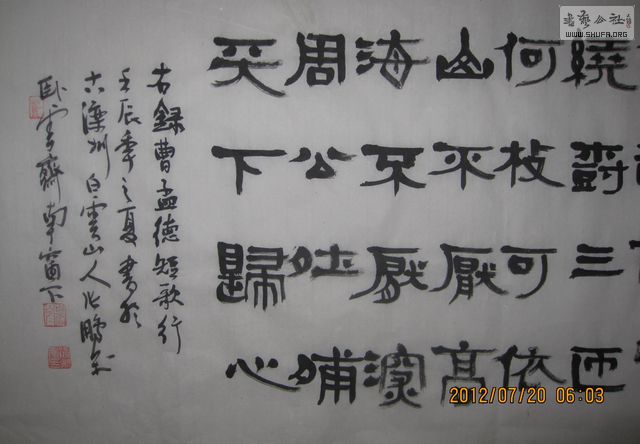 书艺公社
WWW.SHUFA.ORG
繞尌三匝
何枝可依
山不厭高
海不厭深
周公吐哺
天下歸心
右錄曹孟德短歌行
壬辰年之夏書於
古灤州白雲山人
臥雲齋南窗下
2012/07/20 06:03